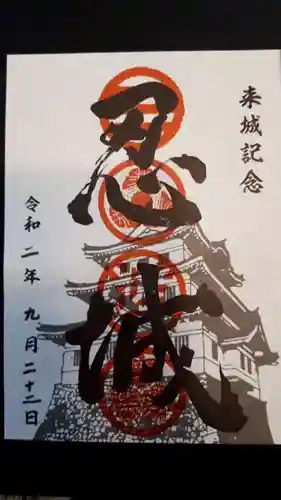 来城記念
忍城
令和二年九月二十二日